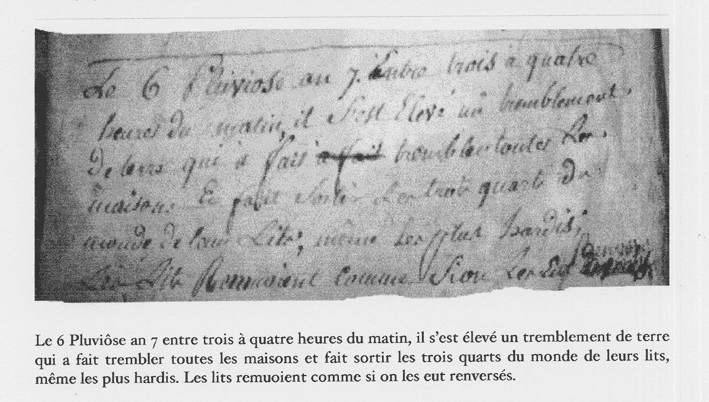 Le 6 Pluviose an 7. Entre trois à quatre
heures du matin, il s'est Elevé un tremblement
De terre qui à fait a fait trembler toutes Les
maisons Et fait Sortir Les trois quarts du
monde De leur Lits, même Les plus hardis;
Les Lits Remuoient Comme Sion Les Eut
Le 6 Pluviôse an 7 entre trois à quatre heures du matin, il s'est élevé un tremblement de terre
qui a fait trembler toutes les maisons et fait sortir les trois quarts du monde de leurs lits,
même les plus hardis. Les lits remuoient comme si on les eut renversés.